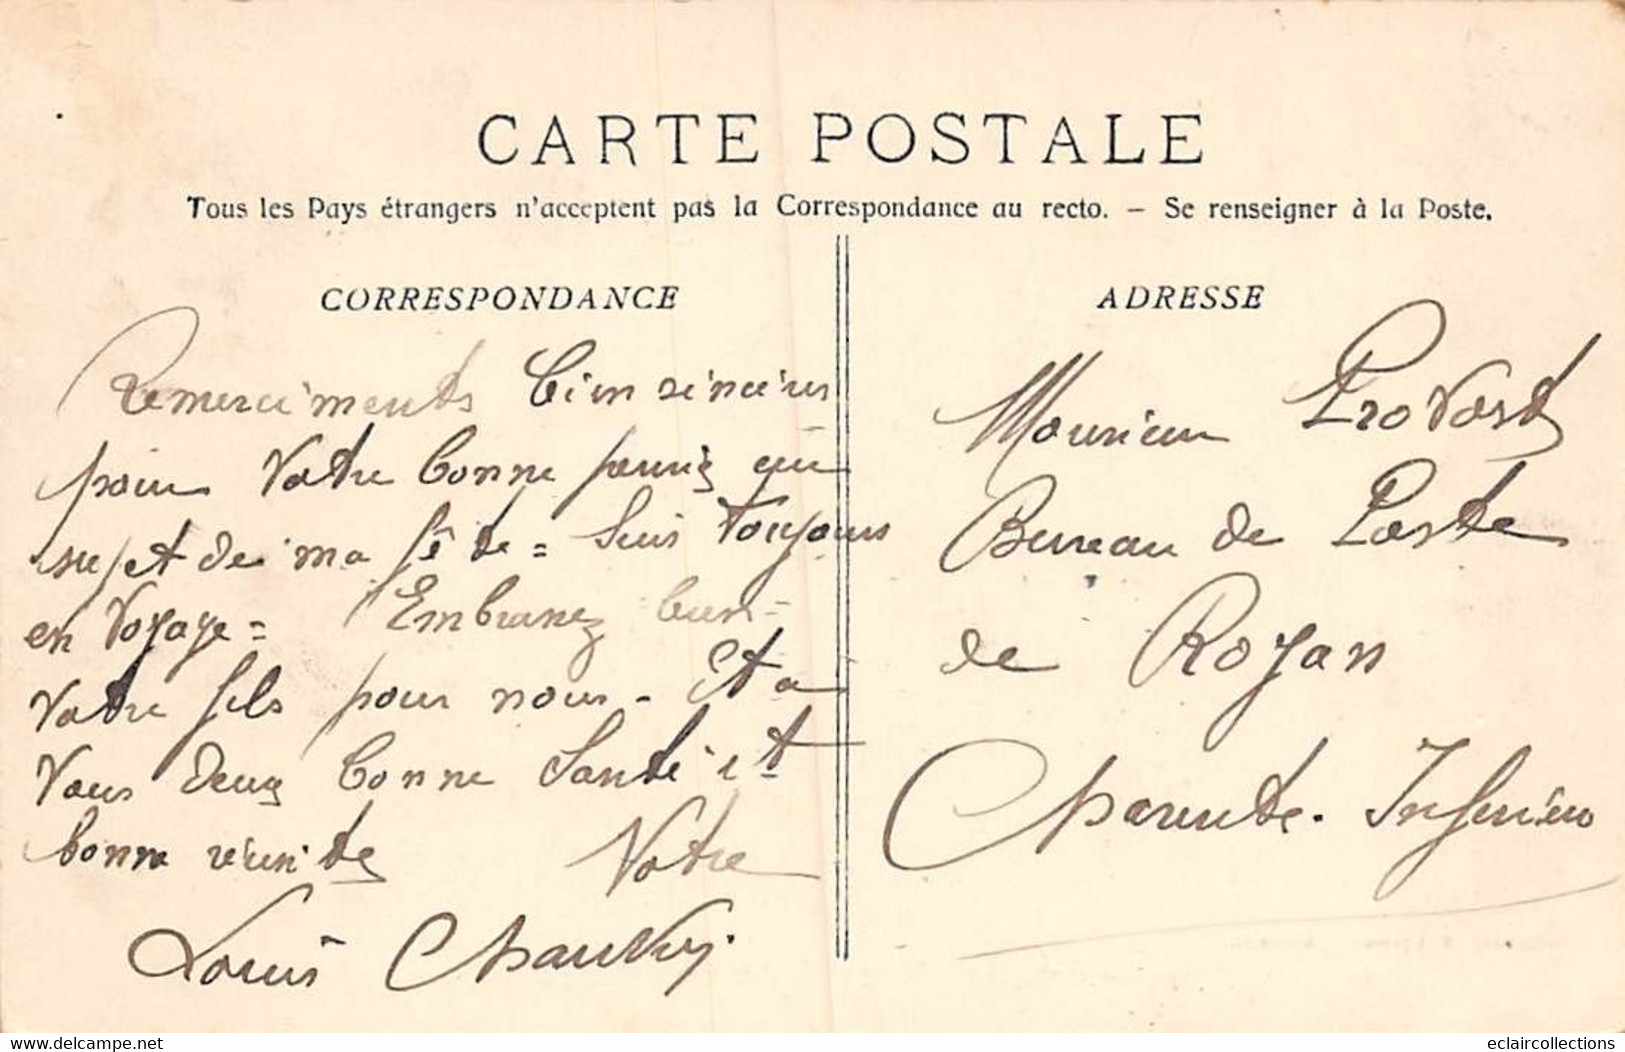 CARTE POSTALE
Tous les Pays étrangers n'acceptent pas la Correspondance au recto. — Se renseigner à la Poste.
CORRESPONDANCE
Remerciments bien sincères
pour Votre bonne pensée au
sujet de ma fête = Suis Toujours
en Voyage = Embrassez bien
Votre fils pour nous - Et a
Vous deux bonne Santé et
bonne réusite Votre
Louis Chauvey.
ADRESSE
Monsieur Provost
Bureau de Poste
de Royan
Charente. Inférieure
www.delcampe.net
eclaircollections